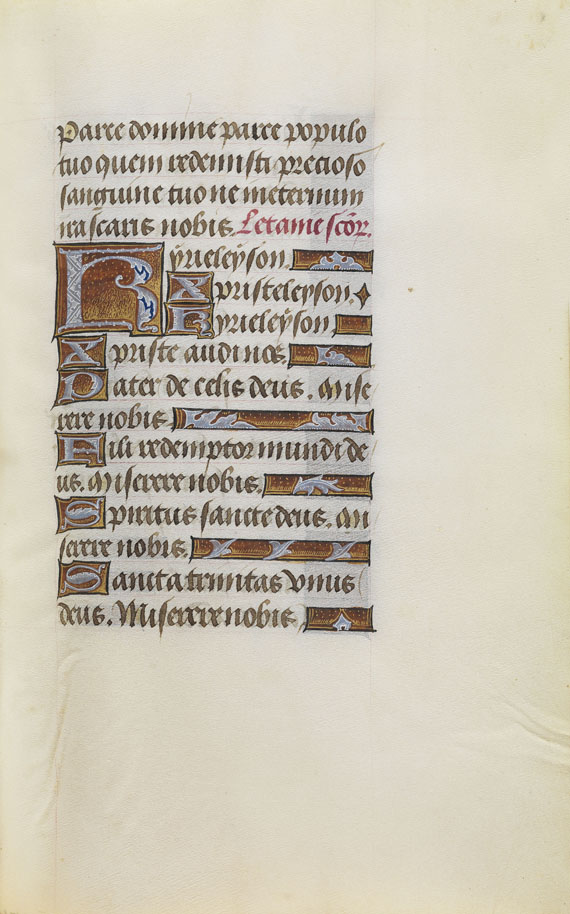 Parce domine parce populo
tuo quem redemisti precioso
sanguine tuo ne ineternum
irascaris nobis. Letanie scōꝝ.
Kÿrieleÿson.
Xpristeleyson.
Kyrieleÿson
Xpriste audi nos.
Pater de celis deus. Mise
rere nobis.
Fili redemptor mundi de
us. Miserere nobis.
Spiritus sancte deus. Mi
serere nobis.
Sancta trinitas vnus
deus. Miserere nobis.